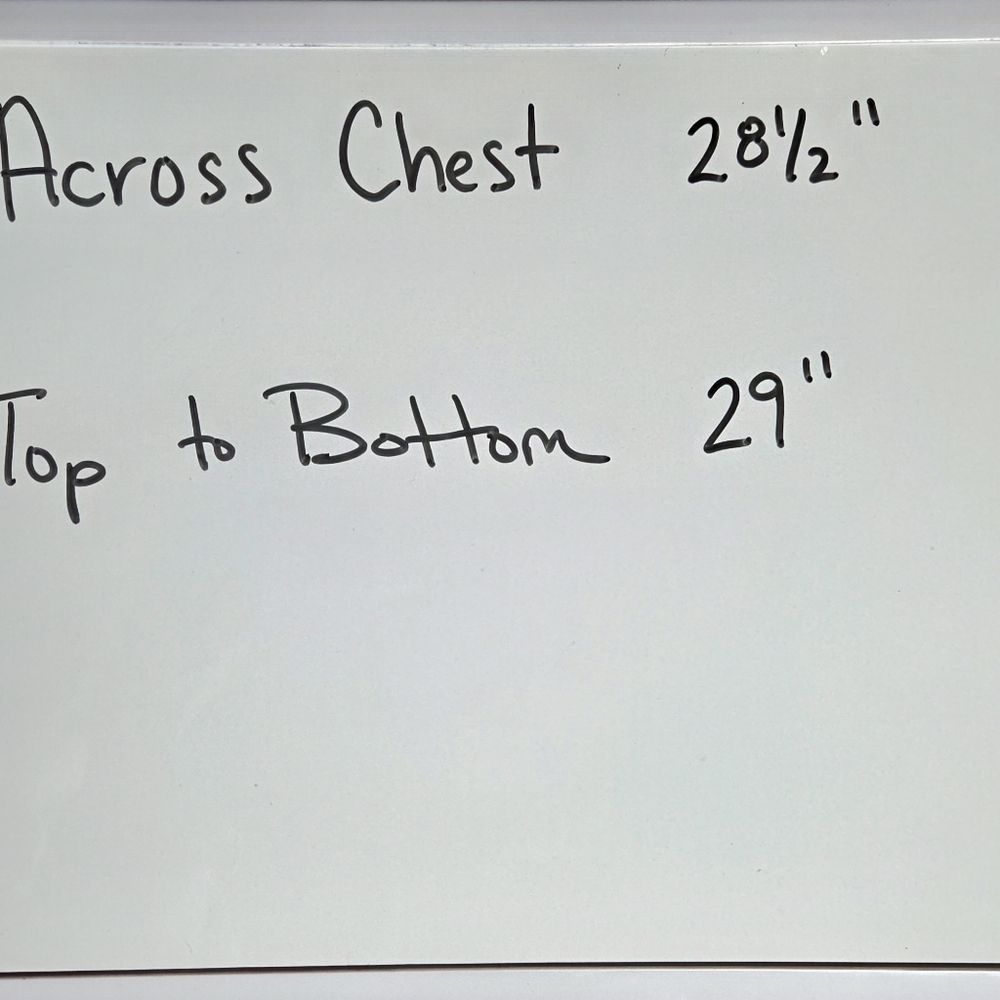 Across Chest 28 1/2"
Top to Bottom 29"